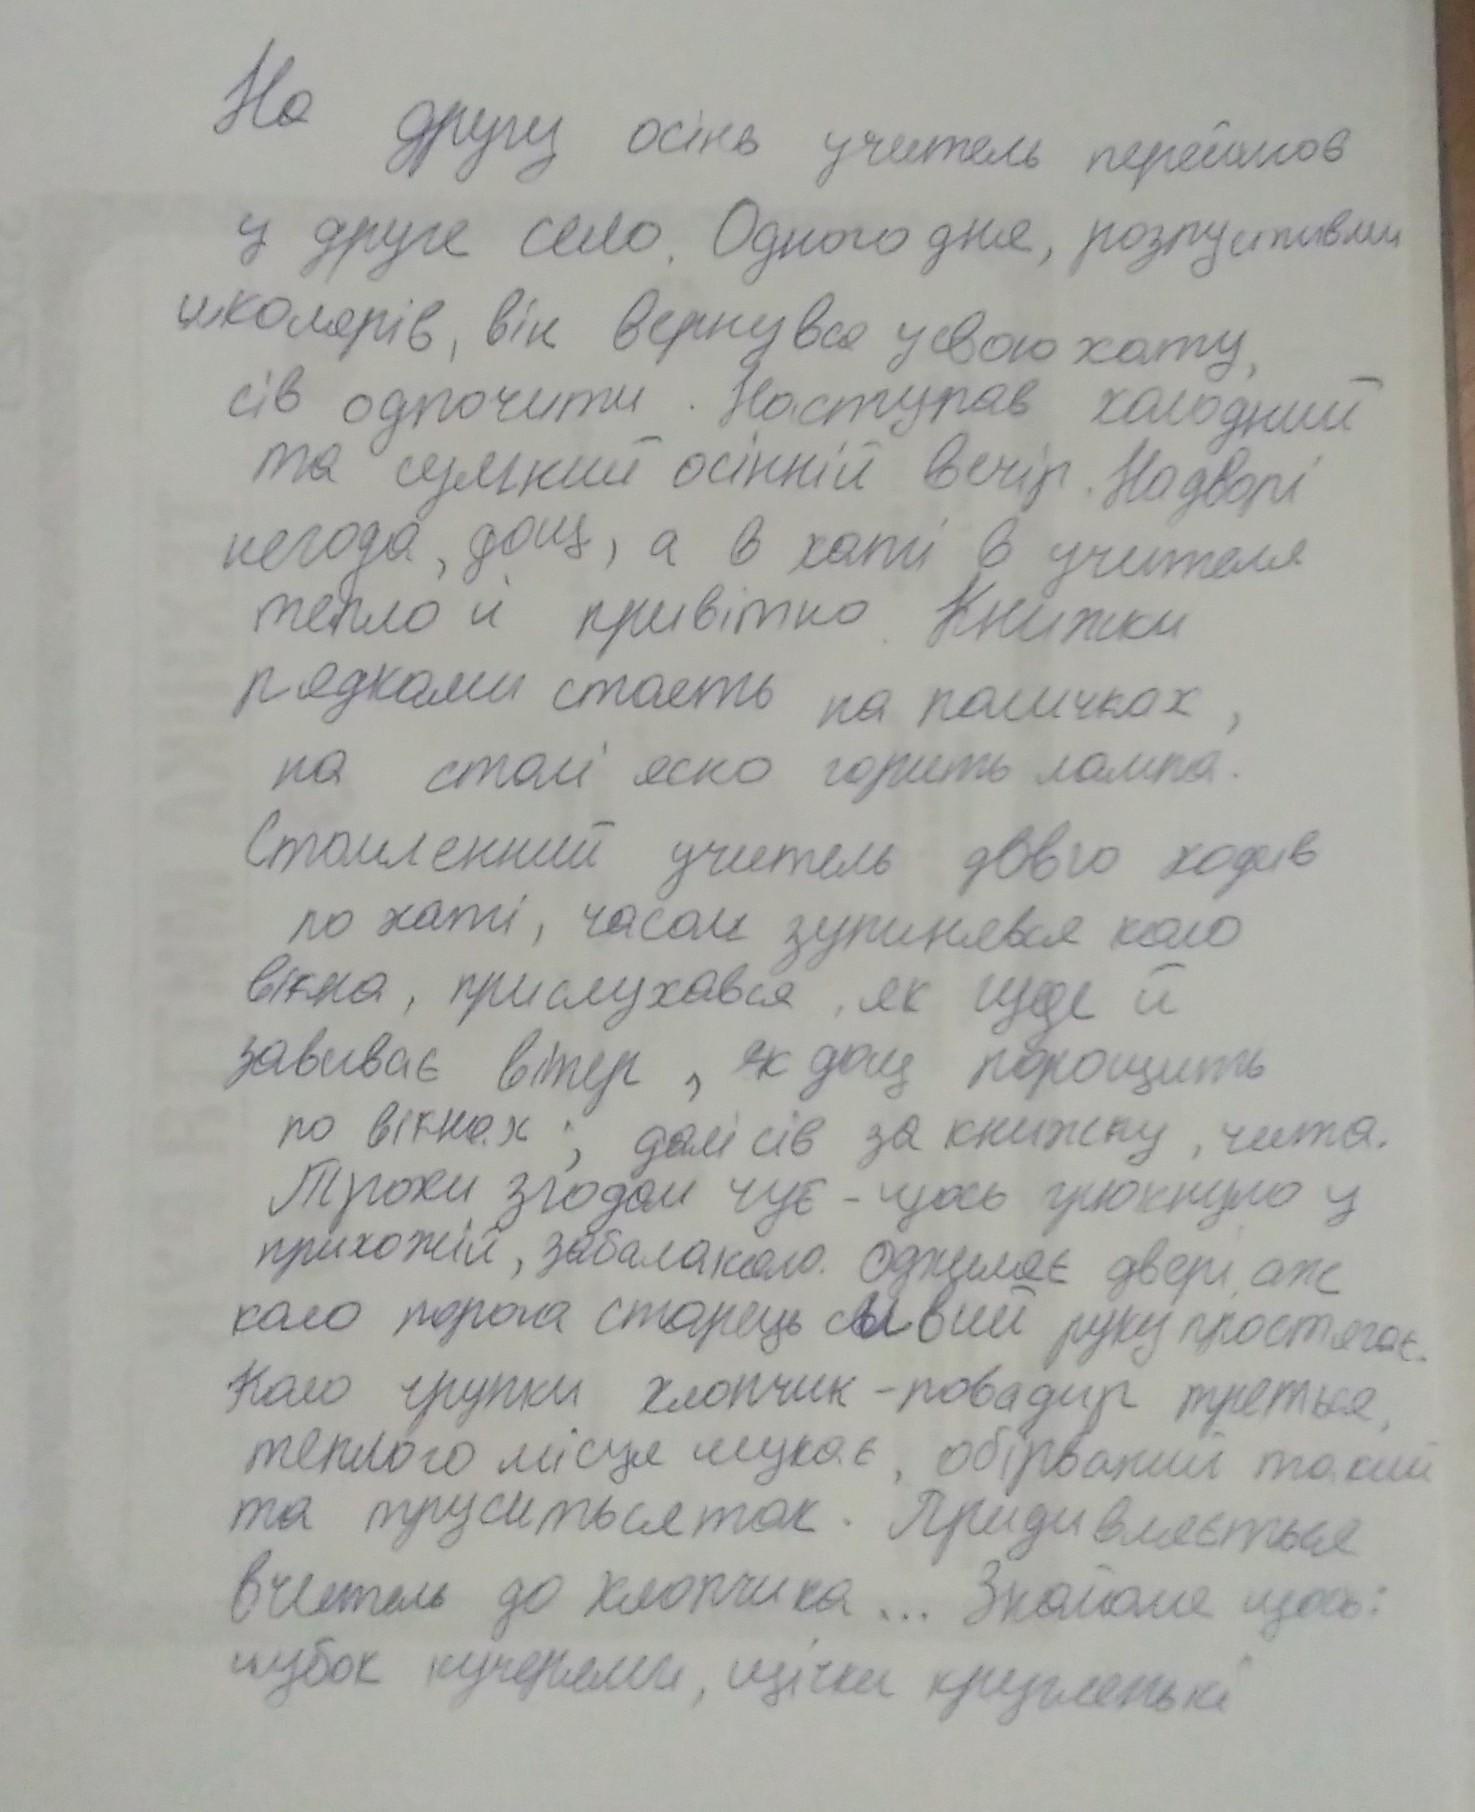 На другу осінь учитель перейшов
у друге село. Одного дня, розпустивши
школярів, він вернувся у свою хату,
сів одпочити. Наступав холодний
та сумний осінній вечір. Надворі
негода, дощ, а в хаті в учителя
тепло й привітно. Книжки
рядками стоять на поличках,
на столі ясно горить лампа.
Стомленний учитель довго ходив
по хаті, часом зупинявся коло
вікна, прислухався, як гуде й
завиває вітер, як дощ порощить
по вікнах; далі сів за книжку, чита.
Трохи згодом чує - щось грюкнуло у
прихожій, забалакало. Одхиляє двері, аж
коло порога старець сивий руку простягає.
Коло грубки хлопчик-повадир треться,
теплого місця шукає, обірваний такий
та труситься так. Придивляється
вчитель до хлопчика... Знайоме щось:
чубок кучерями, щічки кругленькі